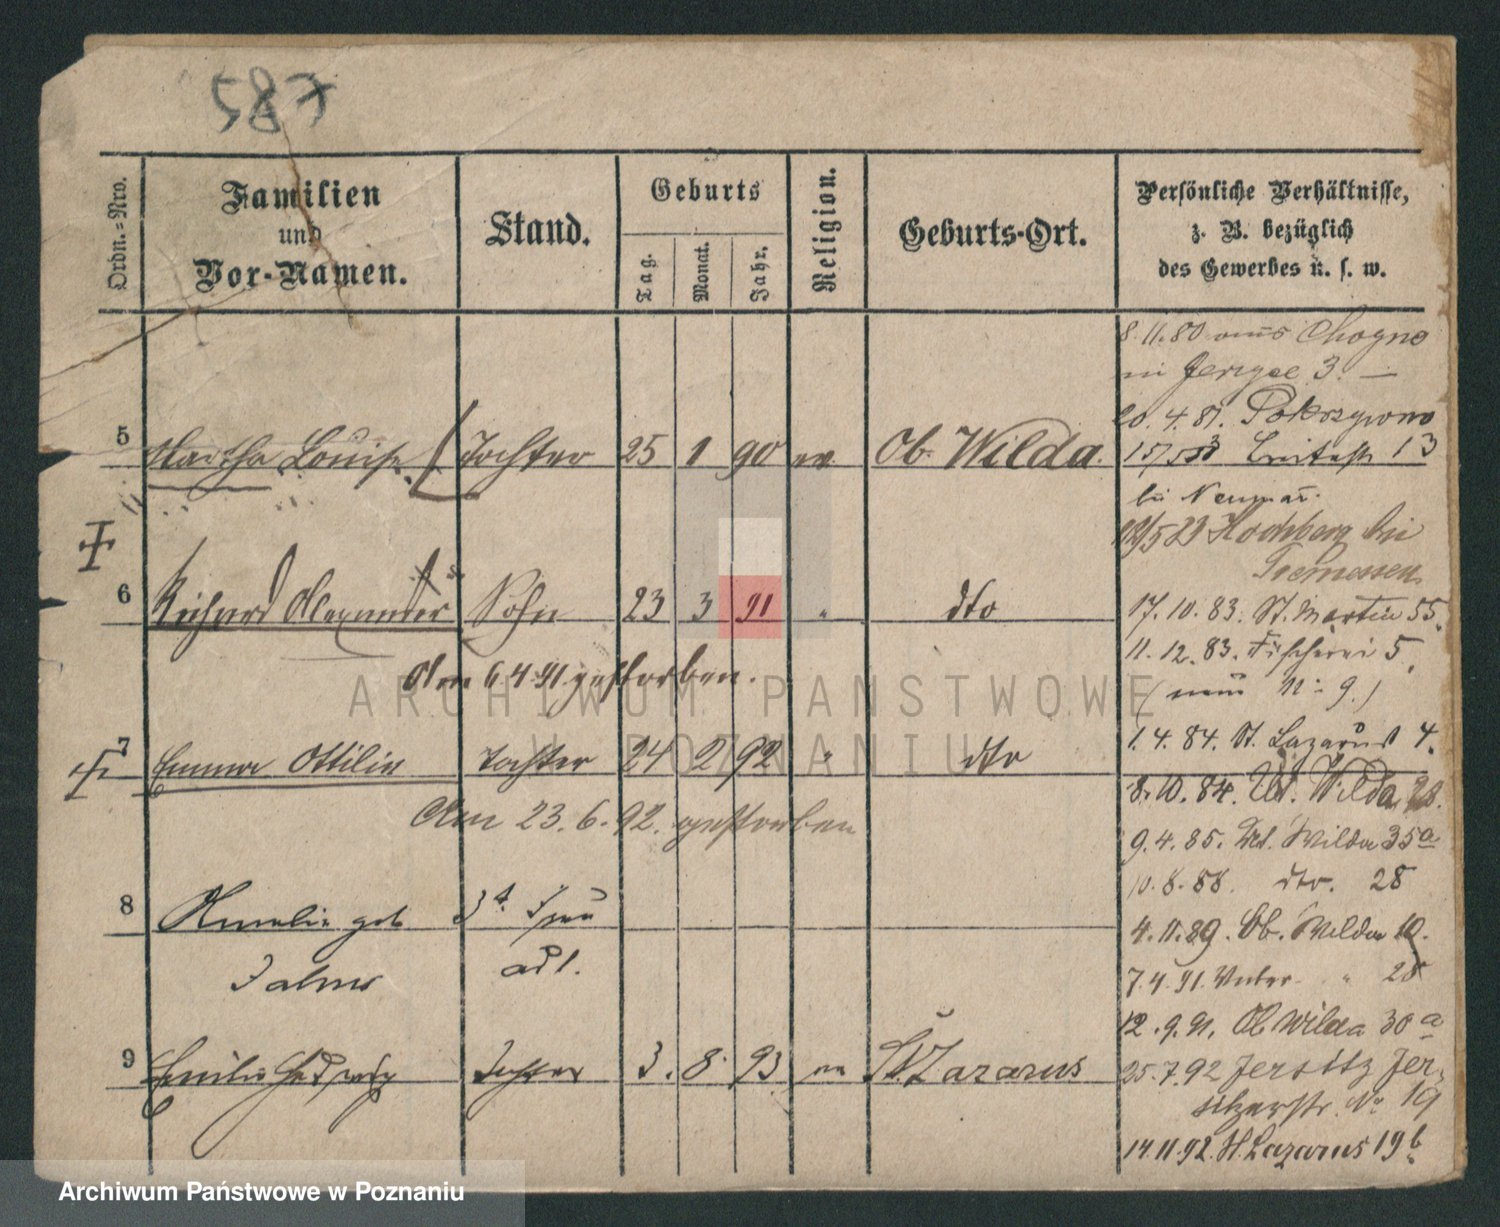 587
Ordn.=Nro.
Familien
und
Vor-Namen.
Stand.
Geburts
Tag.
Monat.
Jahr.
Religion.
Geburts-Ort.
Persönliche Verhältnisse,
z. B. bezüglich
des Gewerbes u. s. w.
8.11.80 aus Chogno
in Jerzyce 3. —
20.4.81. Pokrzywno
5 Martha Louise Tochter 25 1 90 ev Ob. Wilda.
13
bei Neuman.
12/5 23 Hochberg bei
Tremessen
6 Richard Alexander Sohn 23 3 91 " dto
17.10.83. St. Martin 55.
11.12.83. Fischerei 5.
Am 6.4.91 gestorben.
(neue N: 9.)
7 Emma Ottilie Tochter 24 2 92 " dto
1.4.84. St. Lazarus 4.
8.10.84. Wilda 28.
Am 23.6.92. gestorben
9.4.85. Wilda 35a
10.8.88. dto. 28
8 Amalie geb 3t Frau
4.11.89. Ob. Wilda 10.
adl.
7.4.91. Unter " 28
12.9.91. Ob Wilda 30a
9 Emilie Hedwig Tochter 3. 8. 93 ev St. Lazarus
25.7.92 Jersitz Jer-
sitzerstr. No 19
14.11.92. St. Lazarus 19b.
ARCHIWUM PAŃSTWOWE
W POZNANIU
Archiwum Państwowe w Poznaniu